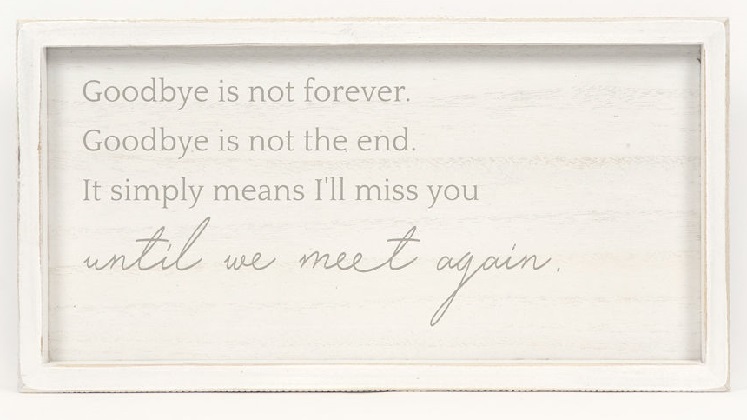 Goodbye is not forever.
Goodbye is not the end.
It simply means I'll miss you
until we meet again.